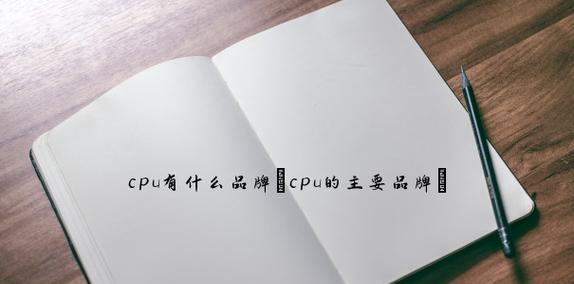 cpu有什么品牌 cpu的主要品牌